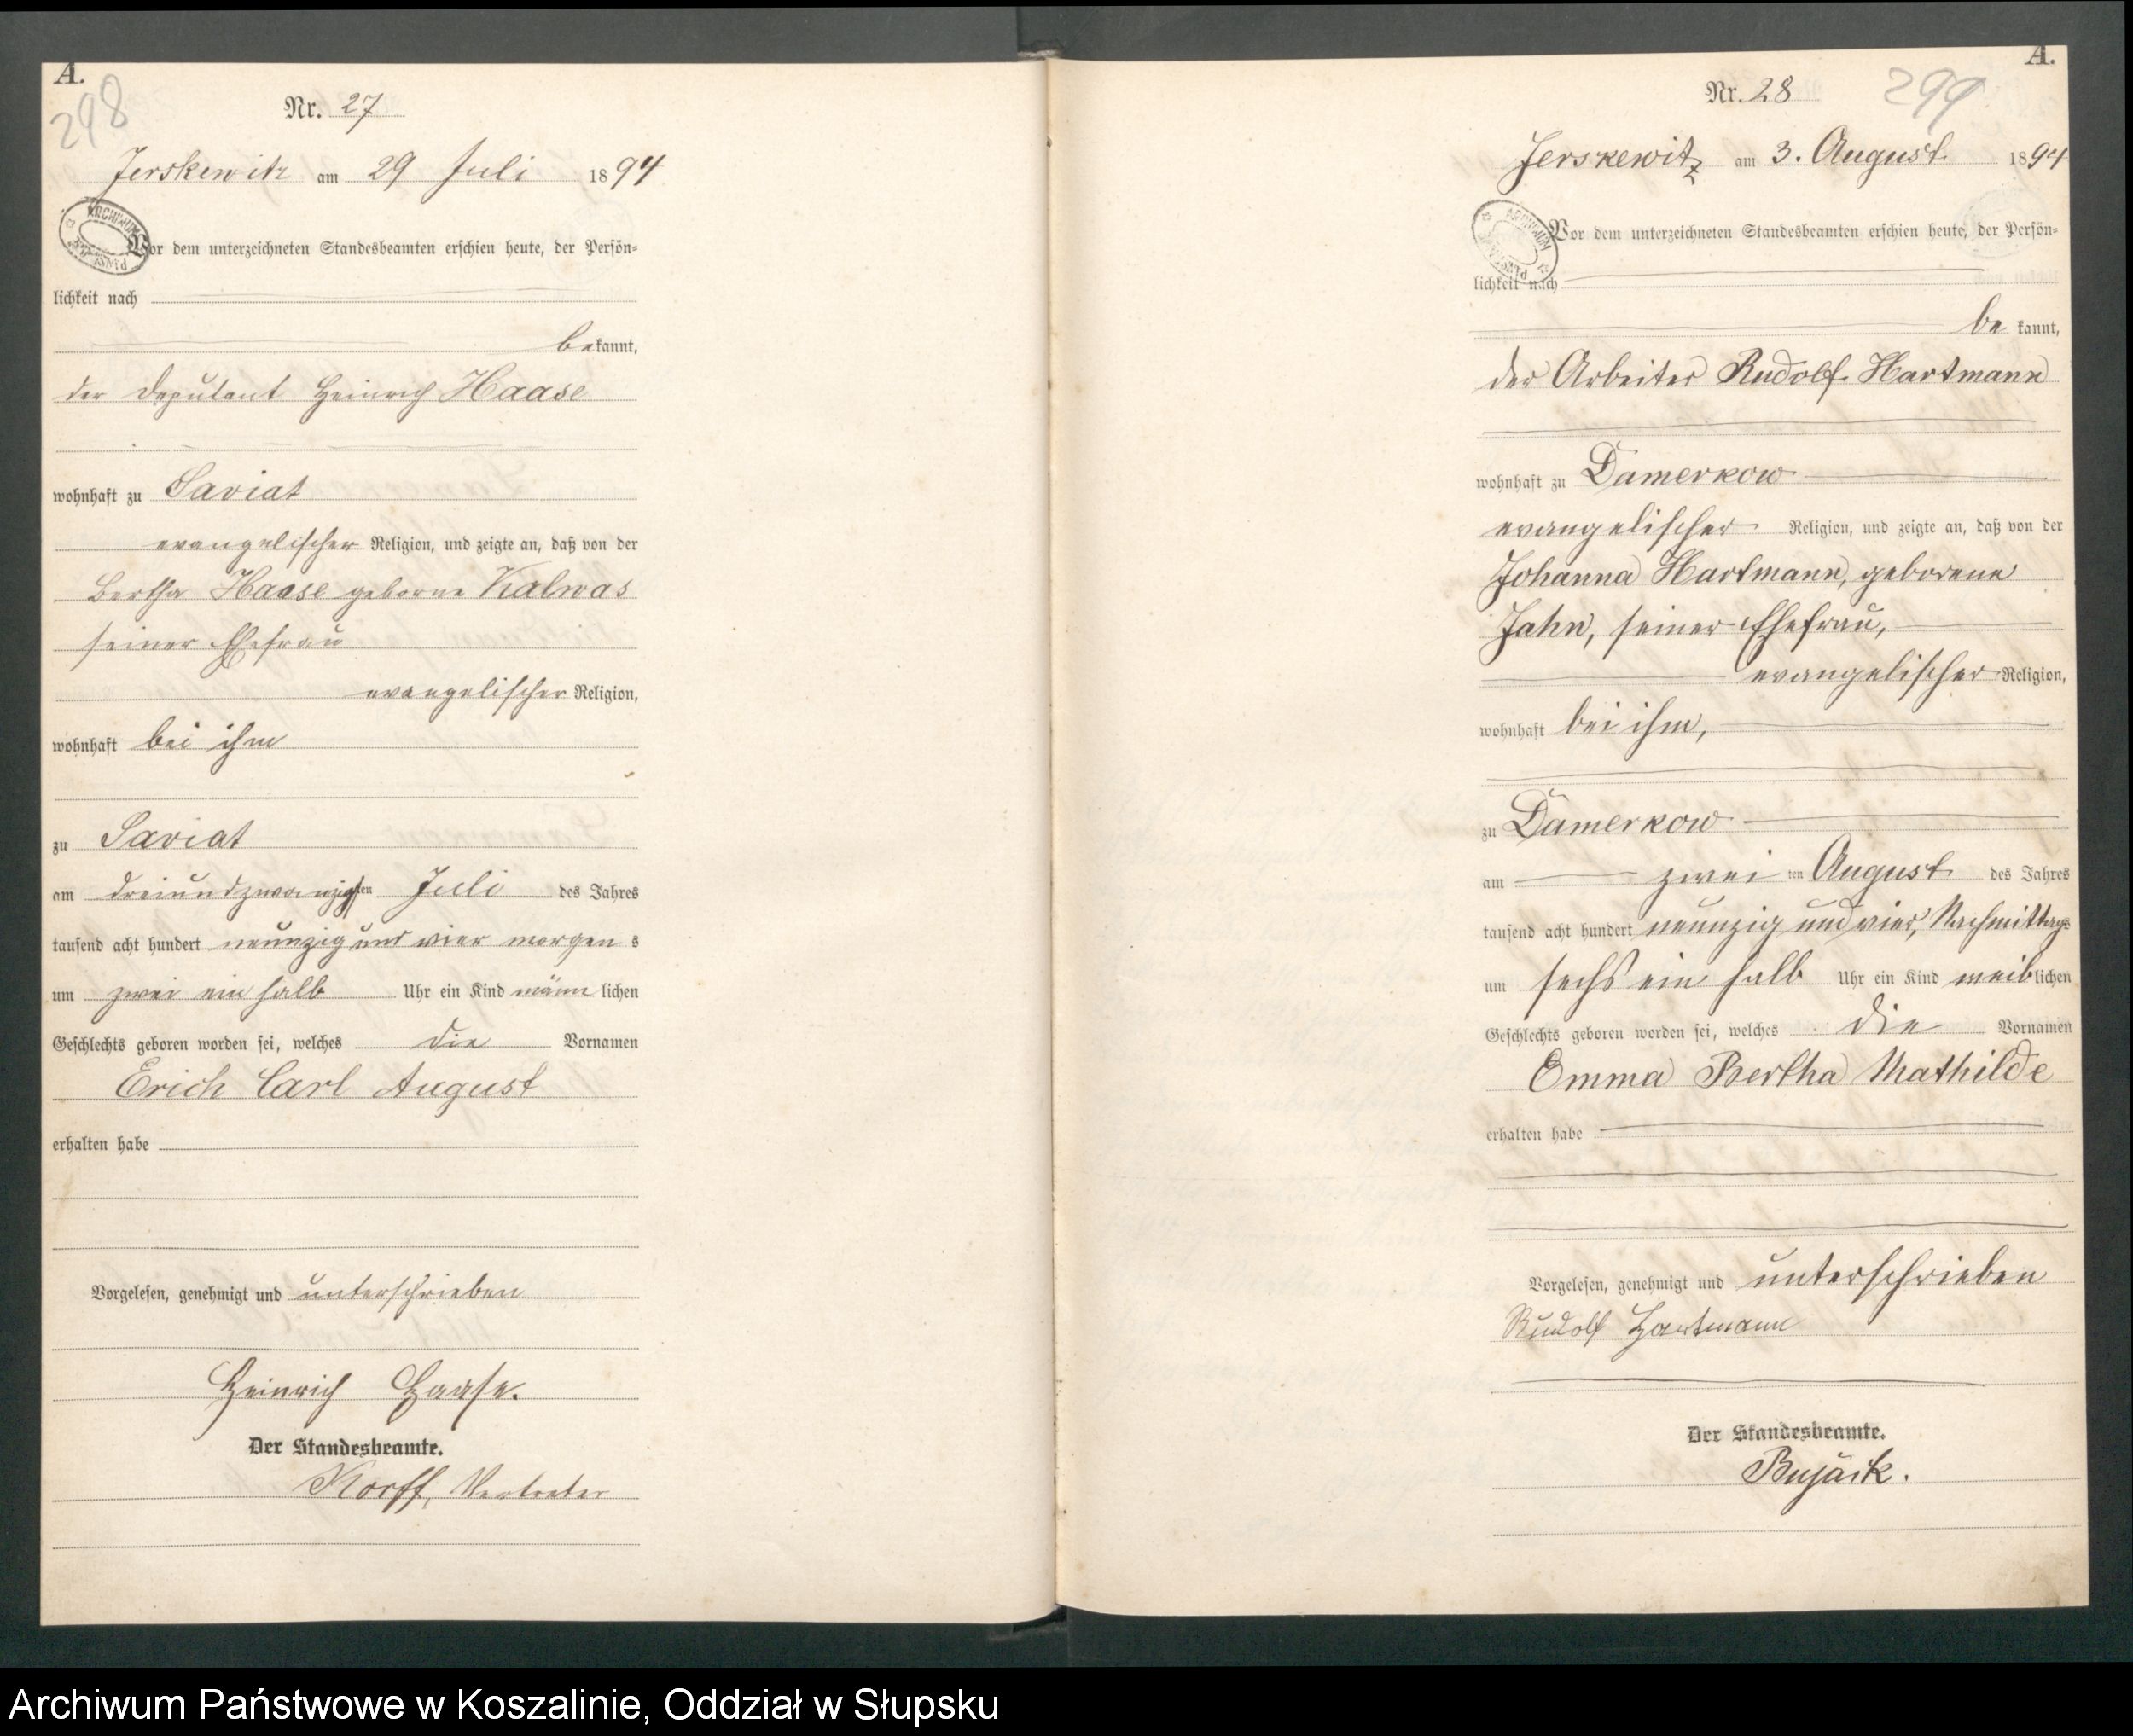 A.
298
Nr. 27
Jerskewitz am 29 Juli 1894
ARCHIWUM
Vor dem unterzeichneten Standesbeamten erschien heute, der Persön=
lichkeit nach
bekannt,
der Deputant Heinrich Haase
wohnhaft zu Saviat
evangelischer Religion, und zeigte an, daß von der
Bertha Haase geborne Kalwas
seiner Ehefrau
evangelischer Religion,
wohnhaft bei ihm
zu Saviat
am dreiundzwanzigsten Juli des Jahres
tausend acht hundert neunzig und vier morgens
um zwei ein halb Uhr ein Kind männlichen
Geschlechts geboren worden sei, welches die Vornamen
Erich Carl August
erhalten habe
Vorgelesen, genehmigt und unterschrieben
Heinrich Haase.
Der Standesbeamte.
Korff, Vertreter
A.
299
Nr. 28
Jerskewitz am 3. August 1894
ARCHIWUM
Vor dem unterzeichneten Standesbeamten erschien heute, der Persön=
lichkeit nach
bekannt,
der Arbeiter Rudolf Hartmann
wohnhaft zu Damerkow
evangelischer Religion, und zeigte an, daß von der
Johanna Hartmann, geborene
Jahn, seiner Ehefrau,
evangelischer Religion,
wohnhaft bei ihm,
zu Damerkow
am zweiten August des Jahres
tausend acht hundert neunzig und vier, Nachmittags
um sechs ein halb Uhr ein Kind weiblichen
Geschlechts geboren worden sei, welches die Vornamen
Emma Bertha Mathilde
erhalten habe
Vorgelesen, genehmigt und unterschrieben
Rudolf Hartmann
Der Standesbeamte.
Bujäck.
Archiwum Państwowe w Koszalinie, Oddział w Słupsku